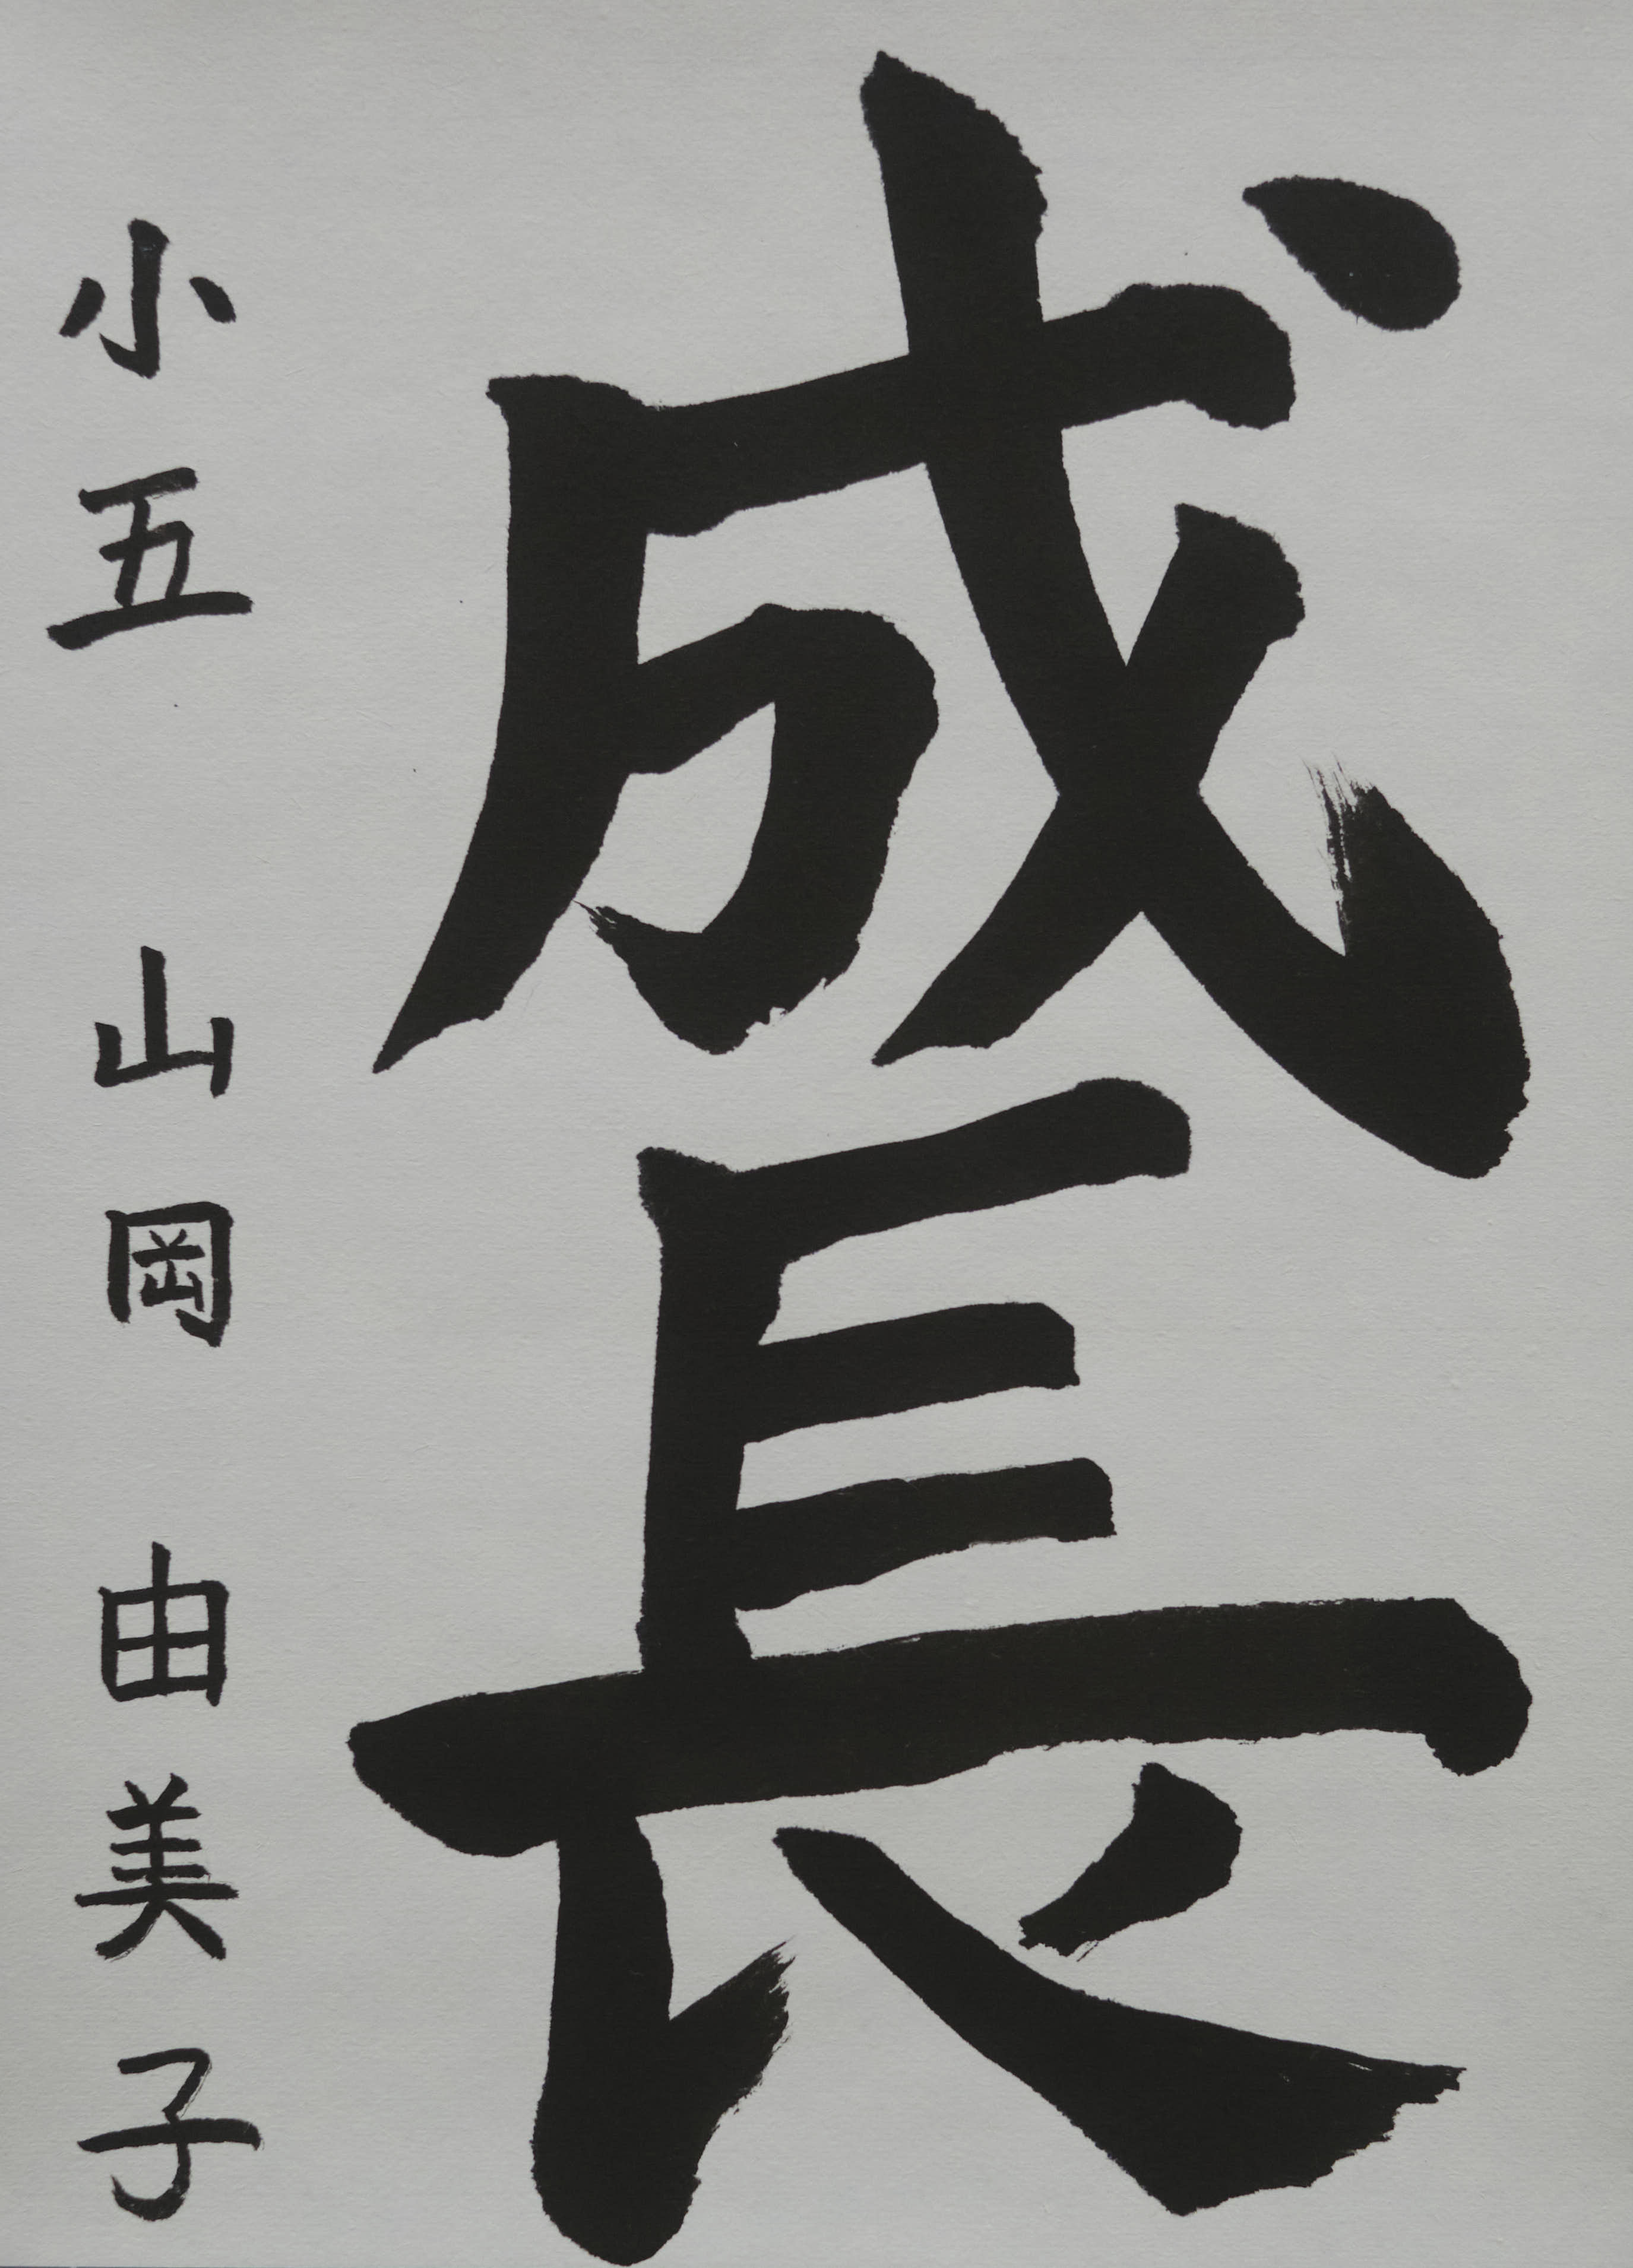 成長
小五 山岡 由美子